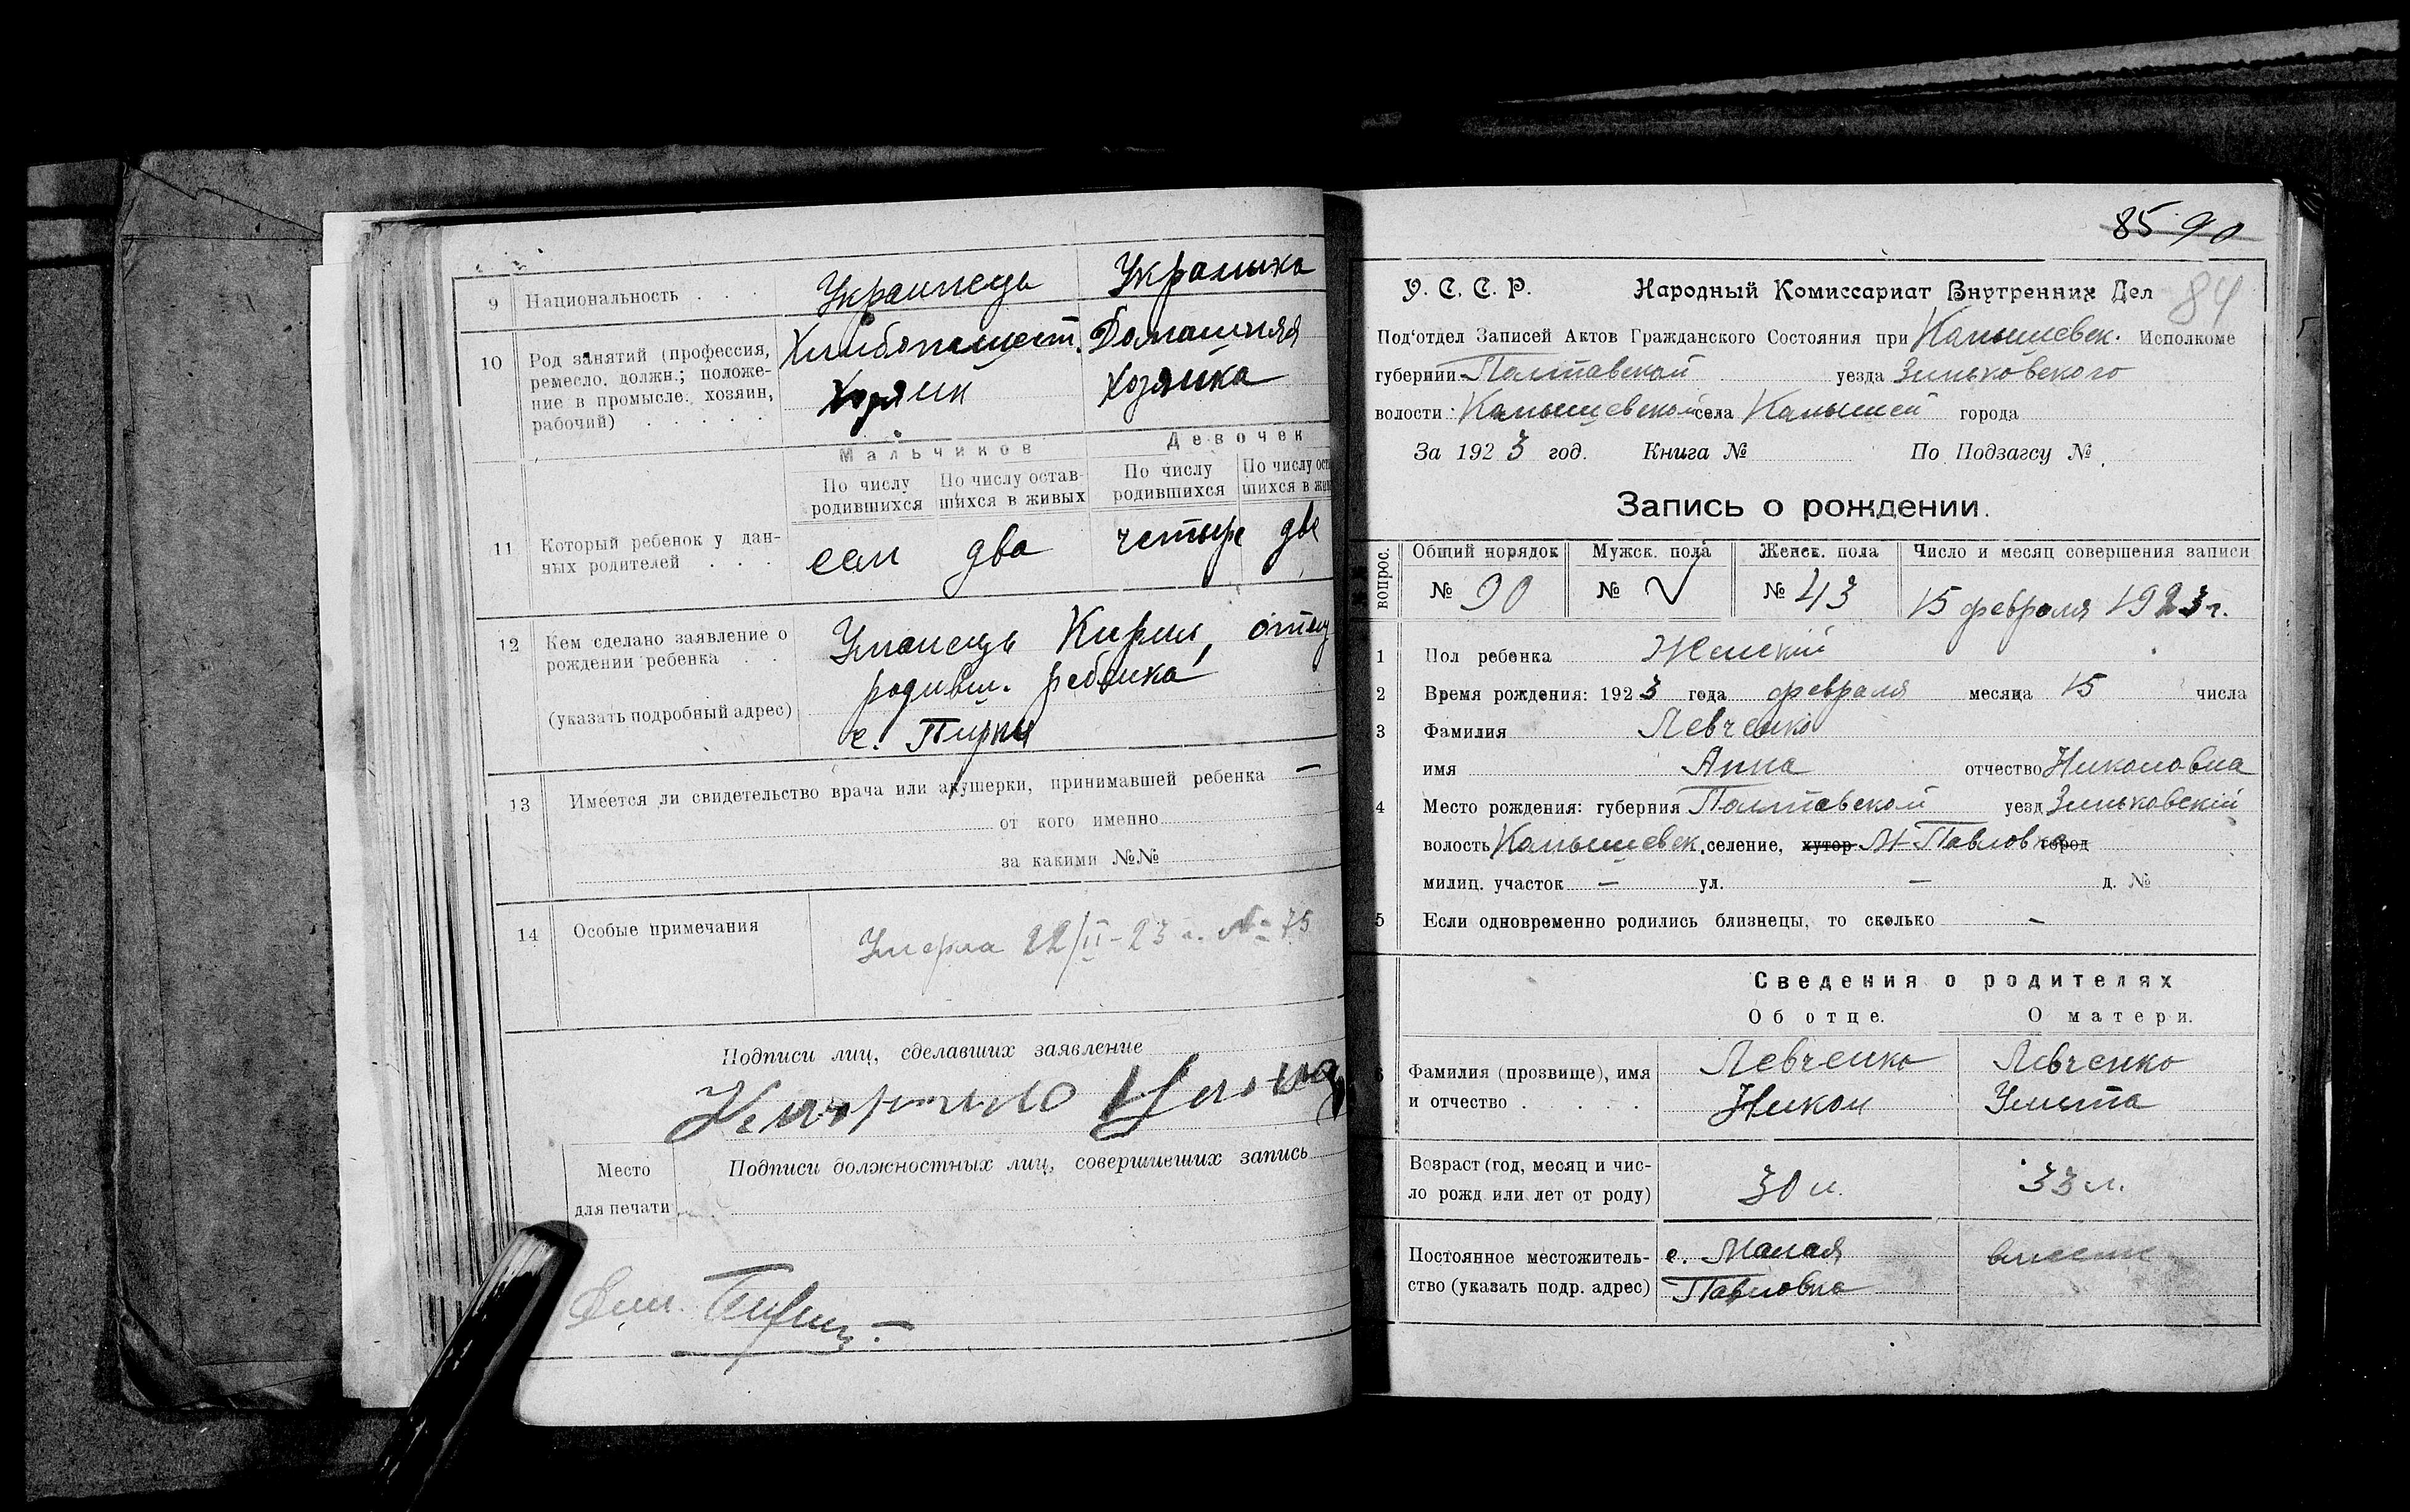 9 Национальность . . . Украинець Украинка
10 Род занятий (профессия, Домашняя
ремесло, должн.; положе- Хозяин Хозяйка
ние в промысле: хозяин,
рабочий) . . . . .
Мальчиков Девочек
По числу родившихся По числу остав-шихся в живых По числу родившихся По числу ост
11 Который ребенок у дан-
ных родителей . . . два четыре две
12 Кем сделано заявление о Уманець Кирил, отец
рождении ребенка . . родивш. ребенка
(указать подробный адрес) с. Пирки
13 Имеется ли свидетельство врача или акушерки, принимавшей ребенка —
от кого именно
за какими №№
14 Особые примечания Умерла 22/II-23 г. № 75
Подписи лиц, сделавших заявление
Кирило
Место для печати
Подписи должностных лиц, совершивших запись
85 90
84
У. С. С. Р. Народный Комиссариат Внутренних Дел
Под'отдел Записей Актов Гражданского Состояния при Камышевск. Исполкоме
губернии Полтавской уезда Зиньковского
волости: Камышевской села Камышей города
За 1923 год. Книга № По Подзагсу №
Запись о рождении.
вопрос. Общий порядок Мужск. пола Женск. пола Число и месяц совершения записи
№ 90 № V № 43 15 февраля 1923 г.
1 Пол ребенка Женский
2 Время рождения: 1923 года февраля месяца 15 числа
3 Фамилия Левченко
имя Анна отчество Никоновна
4 Место рождения: губерния Полтавской уезд Зиньковский
волость Камышевск. селение, хутор М-Павловка город
милиц. участок — ул. — д. №
5 Если одновременно родились близнецы, то сколько —
Сведения о родителях
Об отце. О матери.
6 Фамилия (прозвище), имя Левченко Левченко
и отчество . . . . Никон Улита
Возраст (год, месяц и чис-
ло рожд или лет от роду) 30 л. 33 л.
Постоянное местожитель- с. Малая вместе
ство (указать подр. адрес) Павловка